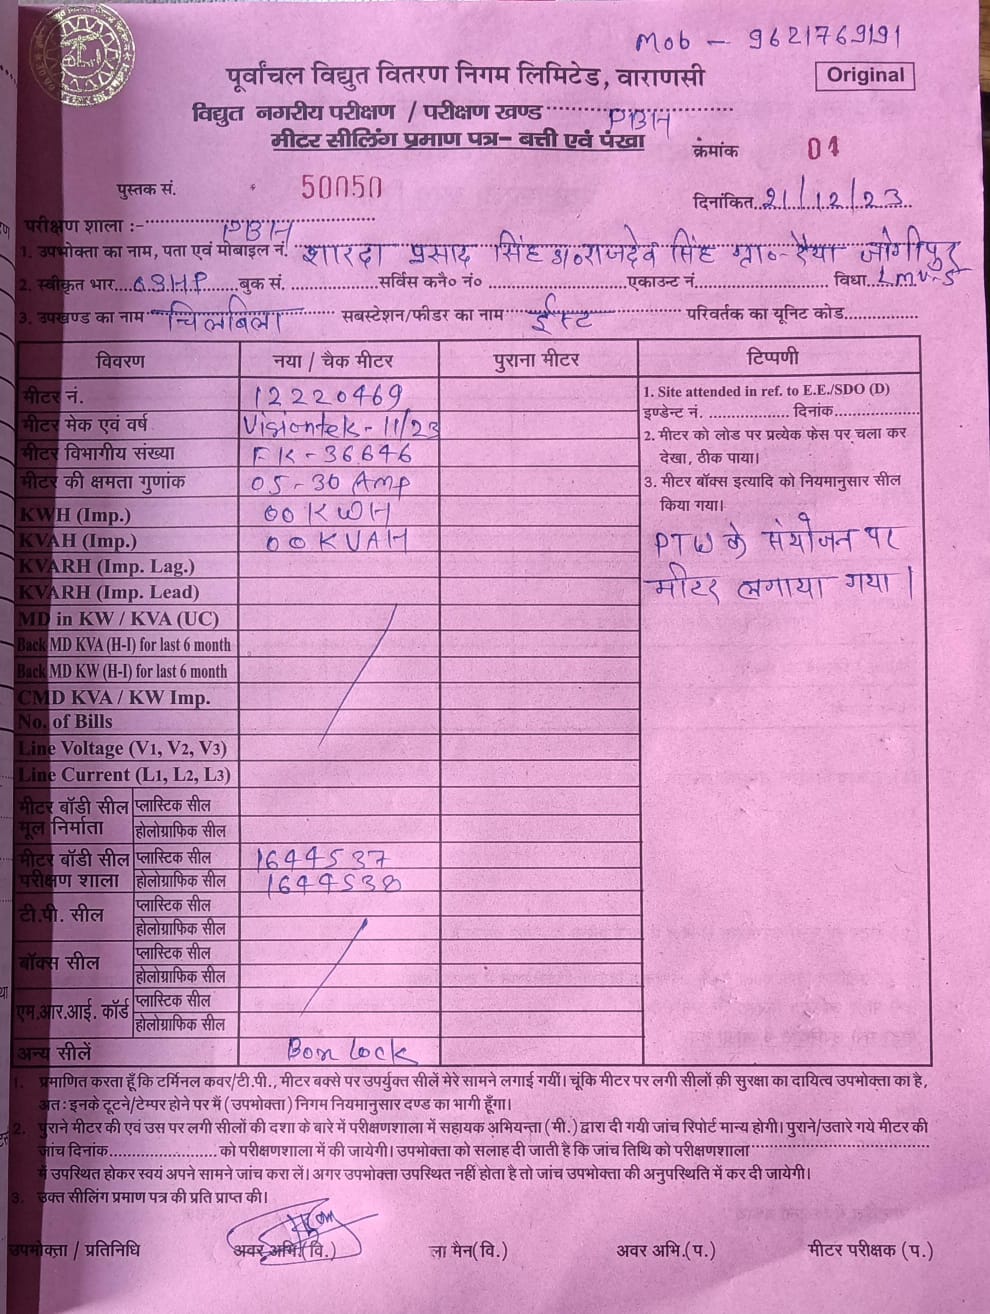 Mob - 9621769191
पूर्वांचल विद्युत वितरण निगम लिमिटेड, वाराणसी
Original
विद्युत नगरीय परीक्षण / परीक्षण खण्ड PBH
मीटर सीलिंग प्रमाण पत्र– बत्ती एवं पंखा
क्रमांक 01
पुस्तक सं. 50050
दिनांकित 21/12/23
परीक्षण शाला :- PBH
1. उपभोक्ता का नाम, पता एवं मोबाइल नं. शारदा प्रसाद सिंह S/o राजदेव सिंह ग्रा०- रैया जोगीपुर
2. स्वीकृत भार बुक सं. सर्विस कनै० नं० एकाउन्ट नं. विधा LMV-5
3. उपखण्ड का नाम चिलबिला सबस्टेशन/फीडर का नाम ईस्ट परिवर्तक का यूनिट कोड
विवरण नया / चैक मीटर पुराना मीटर टिप्पणी
मीटर नं. 12220469
मीटर मेक एवं वर्ष Visiontek - 11/23
मीटर विभागीय संख्या FK - 36646
मीटर की क्षमता गुणांक 05 - 30 Amp
KWH (Imp.) 00 KWH
KVAH (Imp.) 00 KVAH
KVARH (Imp. Lag.)
KVARH (Imp. Lead)
MD in KW / KVA (UC)
Back MD KVA (H-I) for last 6 month
Back MD KW (H-I) for last 6 month
CMD KVA / KW Imp.
No. of Bills
Line Voltage (V1, V2, V3)
Line Current (L1, L2, L3)
मीटर बॉडी सील प्लास्टिक सील
मूल निर्माता होलोग्राफिक सील
मीटर बॉडी सील प्लास्टिक सील 1644537
परीक्षण शाला होलोग्राफिक सील 1644538
टी.पी. सील प्लास्टिक सील
होलोग्राफिक सील
बॉक्स सील प्लास्टिक सील
होलोग्राफिक सील
एम.आर.आई. कॉर्ड प्लास्टिक सील
होलोग्राफिक सील
अन्य सीलें Box Lock
1. Site attended in ref. to E.E./SDO (D)
इण्डेन्ट नं. दिनांक
2. मीटर को लोड पर प्रत्येक फेस पर चला कर
देखा, ठीक पाया।
3. मीटर बॉक्स इत्यादि को नियमानुसार सील
किया गया।
PTW के संयोजन पर
मीटर लगाया गया।
1. प्रमाणित करता हूँ कि टर्मिनल कवर/टी.पी., मीटर बक्से पर उपर्युक्त सीलें मेरे सामने लगाई गयीं। चूंकि मीटर पर लगी सीलों की सुरक्षा का दायित्व उपभोक्ता का है,
अतः इनके टूटने/टेम्पर होने पर मैं (उपभोक्ता) निगम नियमानुसार दण्ड का भागी हूँगा।
2. पुराने मीटर की एवं उस पर लगी सीलों की दशा के बारे में परीक्षणशाला में सहायक अभियन्ता (मी.) द्वारा दी गयी जांच रिपोर्ट मान्य होगी। पुराने/उतारे गये मीटर की
जांच दिनांक को परीक्षणशाला में की जायेगी। उपभोक्ता को सलाह दी जाती है कि जांच तिथि को परीक्षणशाला
में उपस्थित होकर स्वयं अपने सामने जांच करा लें। अगर उपभोक्ता उपस्थित नहीं होता है तो जांच उपभोक्ता की अनुपस्थिति में कर दी जायेगी।
3. उक्त सीलिंग प्रमाण पत्र की प्रति प्राप्त की।
उपभोक्ता / प्रतिनिधि अवर अभि.(वि.) ला मैन(वि.) अवर अभि.(प.) मीटर परीक्षक (प.)